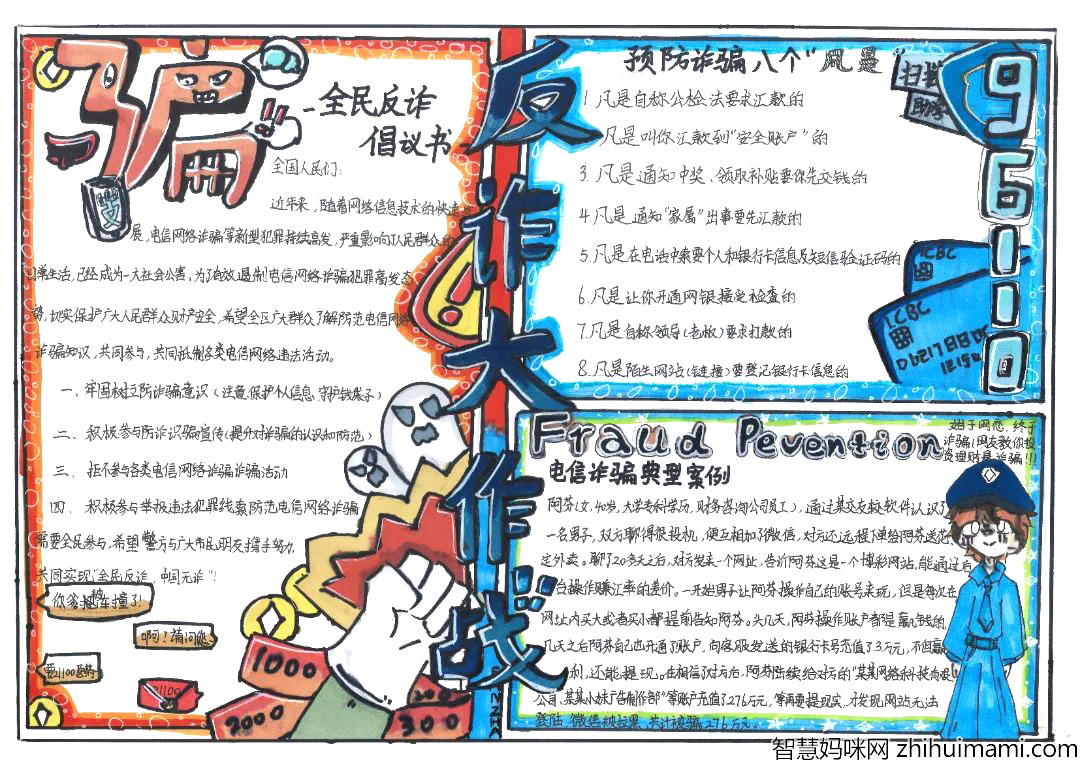 骗
-全民反诈
倡议书
全国人民们:
近年来，随着网络信息技术的快速发
展，电信网络诈骗等新型犯罪持续高发，严重影响了人民群众的
日常生活，已经成为一大社会公害，为了有效遏制电信网络诈骗犯罪高发态
势，切实保护广大人民群众财产安全，希望全民广大群众了解防范电信网络
诈骗知识，共同参与，共同抵制各类电信网络违法活动。
一、牢固树立防诈骗意识（注意保护个人信息，守护钱袋子）
二、积极参与防诈识骗宣传（提升对诈骗的认识和防范）
三、拒不参与各类电信网络诈骗诈骗活动
四、积极参与举报违法犯罪线索防范电信网络诈骗
需要全民参与，希望警方与广大市民朋友携手努力，
共同实现"全民反诈，中国无诈"！
你爹被车撞了！
啊！请问您
要1100医药
1100
1000
2000
300
反诈大作战
预防诈骗八个"凡是"
1.凡是自称公检法要求汇款的
凡是叫你汇款到"安全账户"的
3.凡是通知中奖、领取补贴要你先交钱的
4.凡是通知"家属"出事要先汇款的
5.凡是在电话中索要个人和银行卡信息及短信验证码的
6.凡是让你开通网银接受检查的
7.凡是自称领导(老板)要求打款的
8.凡是陌生网站(链接)要登记银行卡信息的
96110
ICBC
ICBC
Fraud Pevention
始于网恋，终于
诈骗！网友教你投
资理财是诈骗！！！
电信诈骗典型案例
阿芬(女，40岁，大学专科学历，财务咨询公司员工)，通过某交友软件认识了
一名男子，双方聊得很投机，便互相加了微信，对方还远程下单给阿芬送
定外卖。聊了20多天之后，对方发来一个网址，告诉阿芬这是一个博彩网站，能通过后
台操作赚汇率的差价。一开始男子让阿芬操作自己的账号来玩，但是每次在
网址内买大或者买小都提前告知阿芬。头几天，阿芬操作账户都是赢钱的，
几天之后阿芬自己也开通了账户，向客服发送的银行卡号充值了3万元，不但赢
利，还能提现。在相信对方后，阿芬陆续给对方的"某某网络科技有限
公司、某某小妹广告制作部"等账户充值了276万元，等再要提现买，才发现网站无法
登陆，微信被拉黑，共计被骗276万元。
智慧妈咪网 zhihuimami.com